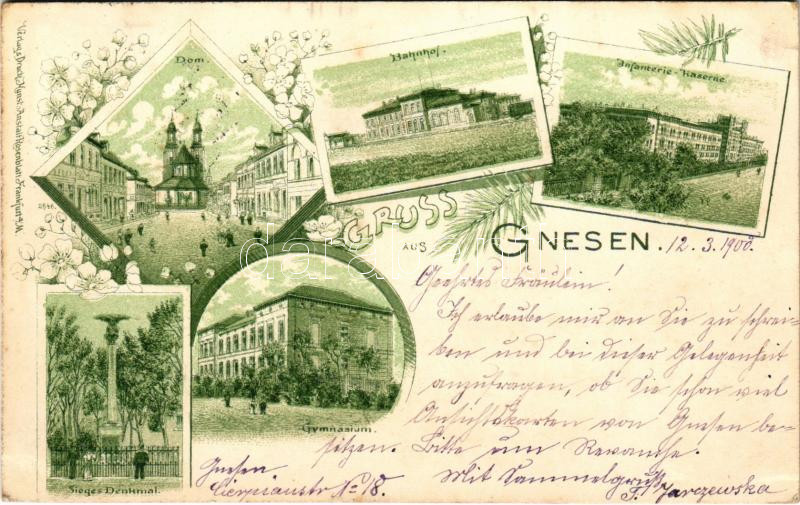 Dom.
Bahnhof.
Infanterie-Kaserne.
GRUSS
AUS
GNESEN.
12.3.1900.
Geehrtes Fräulein!
Ich erlaube mir an Sie zu schrei-
ben und bei dieser Gelegenheit
anzufragen, ob Sie schon viel
Ansichtskarten von Gnesen be-
sitzen. Bitte um Revanche.
Mit Sammelgruß
F. Jarczewska
Gnesen
No 18.
Gymnasium.
Sieges Denkmal.
Verlag u. Druck Kunst-Anstalt Rosenblatt Frankfurt a/M.
darabanth.com